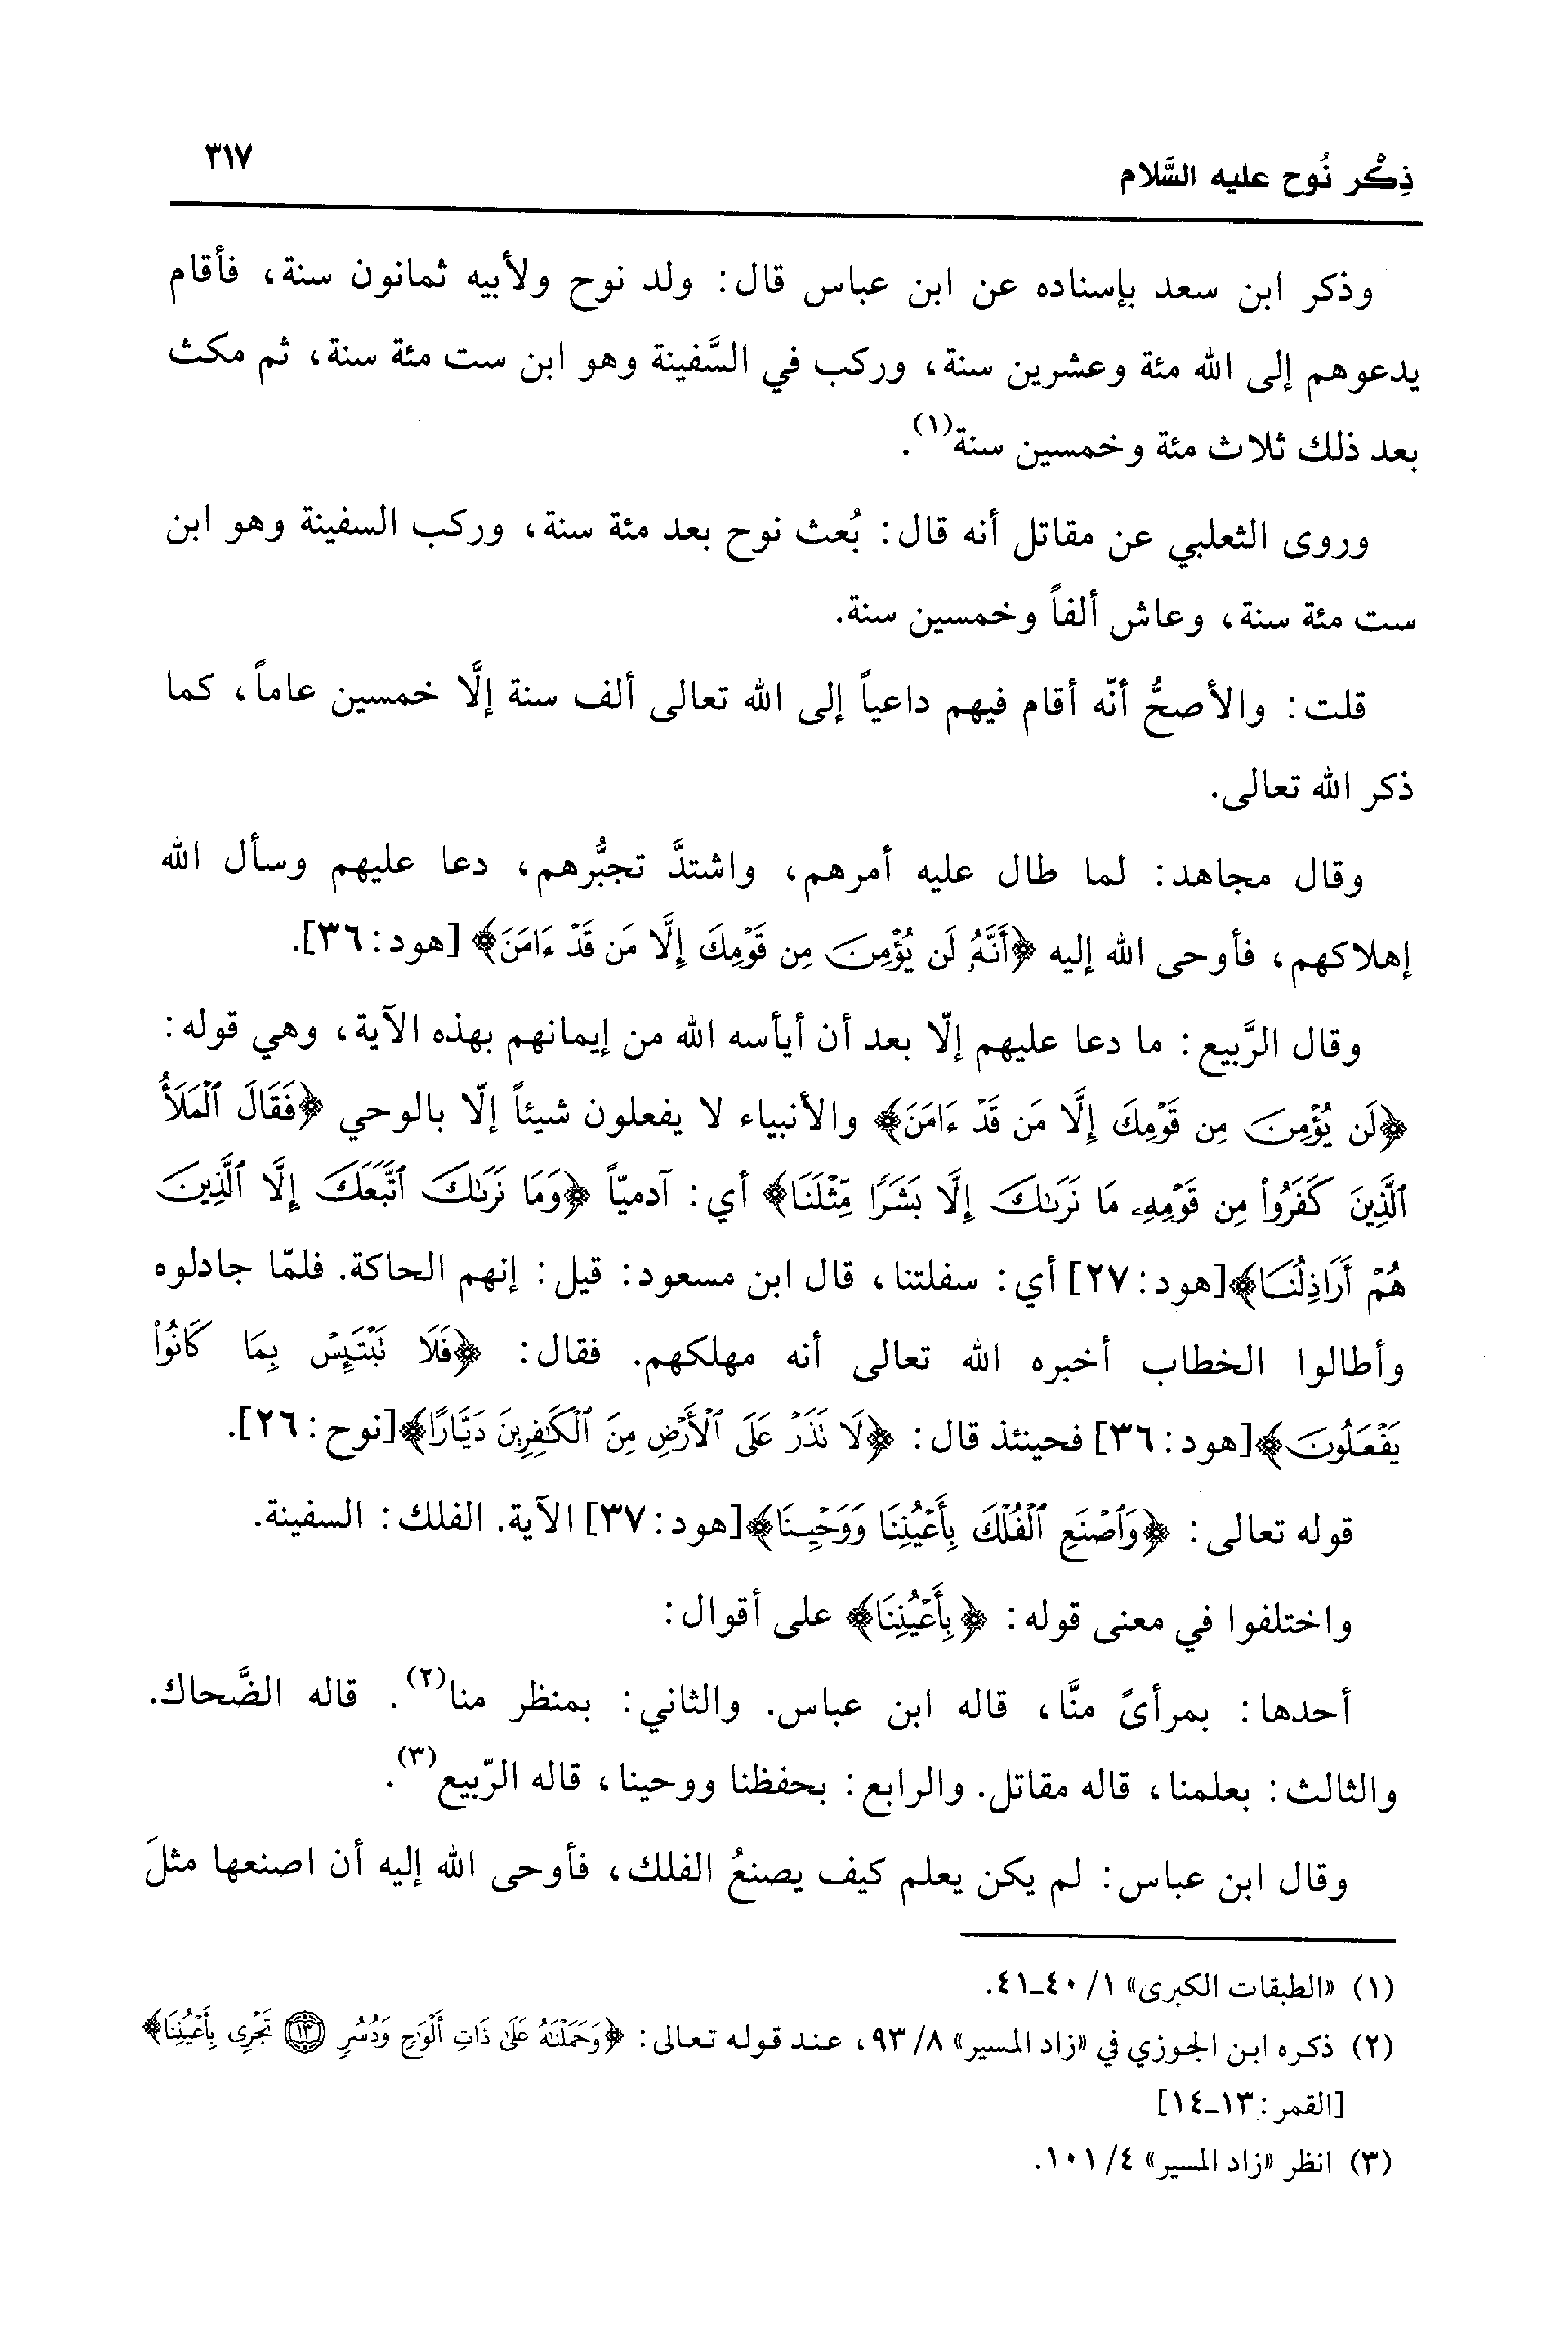 ذِكْر نُوح عليه السَّلام
٣١٧
وذكر ابن سعد بإسناده عن ابن عباس قال: ولد نوح ولأبيه ثمانون سنة، فأقام
يدعوهم إلى الله مئة وعشرين سنة، وركب في السَّفينة وهو ابن ست مئة سنة، ثم مكث
بعد ذلك ثلاث مئة وخمسين سنة(١).
وروى الثعلبي عن مقاتل أنه قال: بُعث نوح بعد مئة سنة، وركب السفينة وهو ابن
ست مئة سنة، وعاش ألفاً وخمسين سنة.
قلت: والأصحُّ أنّه أقام فيهم داعياً إلى الله تعالى ألف سنة إلَّا خمسين عاماً، كما
ذكر الله تعالى.
وقال مجاهد: لما طال عليه أمرهم، واشتدَّ تجبُّرهم، دعا عليهم وسأل الله
إهلاكهم، فأوحى الله إليه ﴿أَنَّهُۥ لَن يُؤْمِنَ مِن قَوْمِكَ إِلَّا مَن قَدْ ءَامَنَ﴾ [هود: ٣٦].
وقال الرَّبيع: ما دعا عليهم إلّا بعد أن أيأسه الله من إيمانهم بهذه الآية، وهي قوله:
﴿لَن يُؤْمِنَ مِن قَوْمِكَ إِلَّا مَن قَدْ ءَامَنَ﴾ والأنبياء لا يفعلون شيئاً إلّا بالوحي ﴿فَقَالَ ٱلْمَلَأُ
ٱلَّذِينَ كَفَرُوا۟ مِن قَوْمِهِۦ مَا نَرَىٰكَ إِلَّا بَشَرًا مِّثْلَنَا﴾ أي: آدميّاً ﴿وَمَا نَرَىٰكَ ٱتَّبَعَكَ إِلَّا ٱلَّذِينَ
هُمْ أَرَاذِلُنَا﴾[هود: ٢٧] أي: سفلتنا، قال ابن مسعود: قيل: إنهم الحاكة. فلمّا جادلوه
وأطالوا الخطاب أخبره الله تعالى أنه مهلكهم. فقال: ﴿فَلَا تَبْتَئِسْ بِمَا كَانُوا۟
يَفْعَلُونَ﴾[هود: ٣٦] فحينئذ قال: ﴿لَا تَذَرْ عَلَى ٱلْأَرْضِ مِنَ ٱلْكَٰفِرِينَ دَيَّارًا﴾[نوح: ٢٦].
قوله تعالى: ﴿وَٱصْنَعِ ٱلْفُلْكَ بِأَعْيُنِنَا وَوَحْيِنَا﴾[هود: ٣٧] الآية. الفلك: السفينة.
واختلفوا في معنى قوله: ﴿بِأَعْيُنِنَا﴾ على أقوال:
أحدها: بمرأىً منَّا، قاله ابن عباس. والثاني: بمنظر منا(٢). قاله الضَّحاك.
والثالث: بعلمنا، قاله مقاتل. والرابع: بحفظنا ووحينا، قاله الرّبيع(٣).
وقال ابن عباس: لم يكن يعلم كيف يصنعُ الفلك، فأوحى الله إليه أن اصنعها مثلَ
(١) «الطبقات الكبرى» ١/ ٤٠-٤١.
(٢) ذكره ابن الجوزي في «زاد المسير» ٨/ ٩٣، عند قوله تعالى: ﴿وَحَمَلْنَٰهُ عَلَىٰ ذَاتِ أَلْوَٰحٍ وَدُسُرٍ ١٣ تَجْرِى بِأَعْيُنِنَا﴾
[القمر: ١٣-١٤]
(٣) انظر «زاد المسير» ٤/ ١٠١.